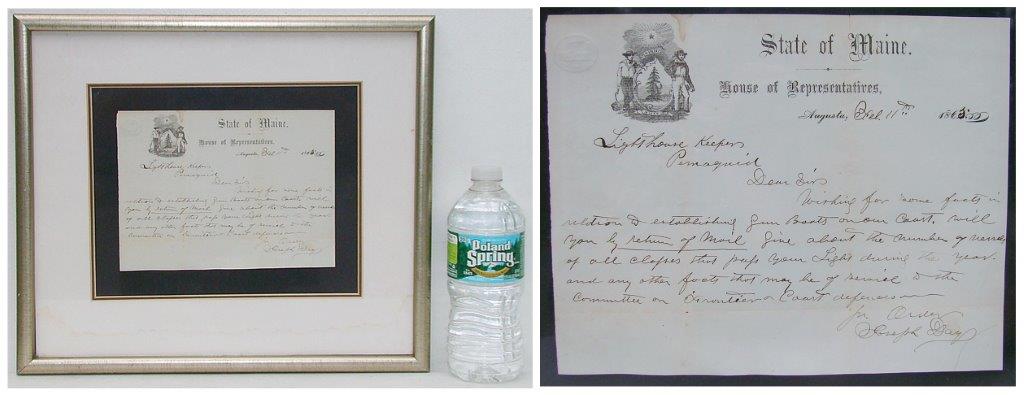 State of Maine.
House of Representatives,
Augusta, Feb 11th 186
Lighthouse Keeper
Pemaquid
Dear Sir
Wishing for some facts in
relation to establishing Gun Boats on our Coast, will
you by return of Mail Give about the number of vessels
of all classes that pass your Light during the year
and any other facts that may be of service to the
Committee on Coast defences
Joseph
Poland
Spring
State of Maine.
House of Representatives,
Augusta, Feb. 11th 186
Lighthouse Keeper
Pemaquid
Dear Sir
Wishing for some facts in
relation to establishing Gun Boats on our Coast, will
you by return of Mail Give about the number of vessels
of all classes that pass your Light during the year
and any other facts that may be of service to the
Committee on Coast defences
pr Order
Joseph